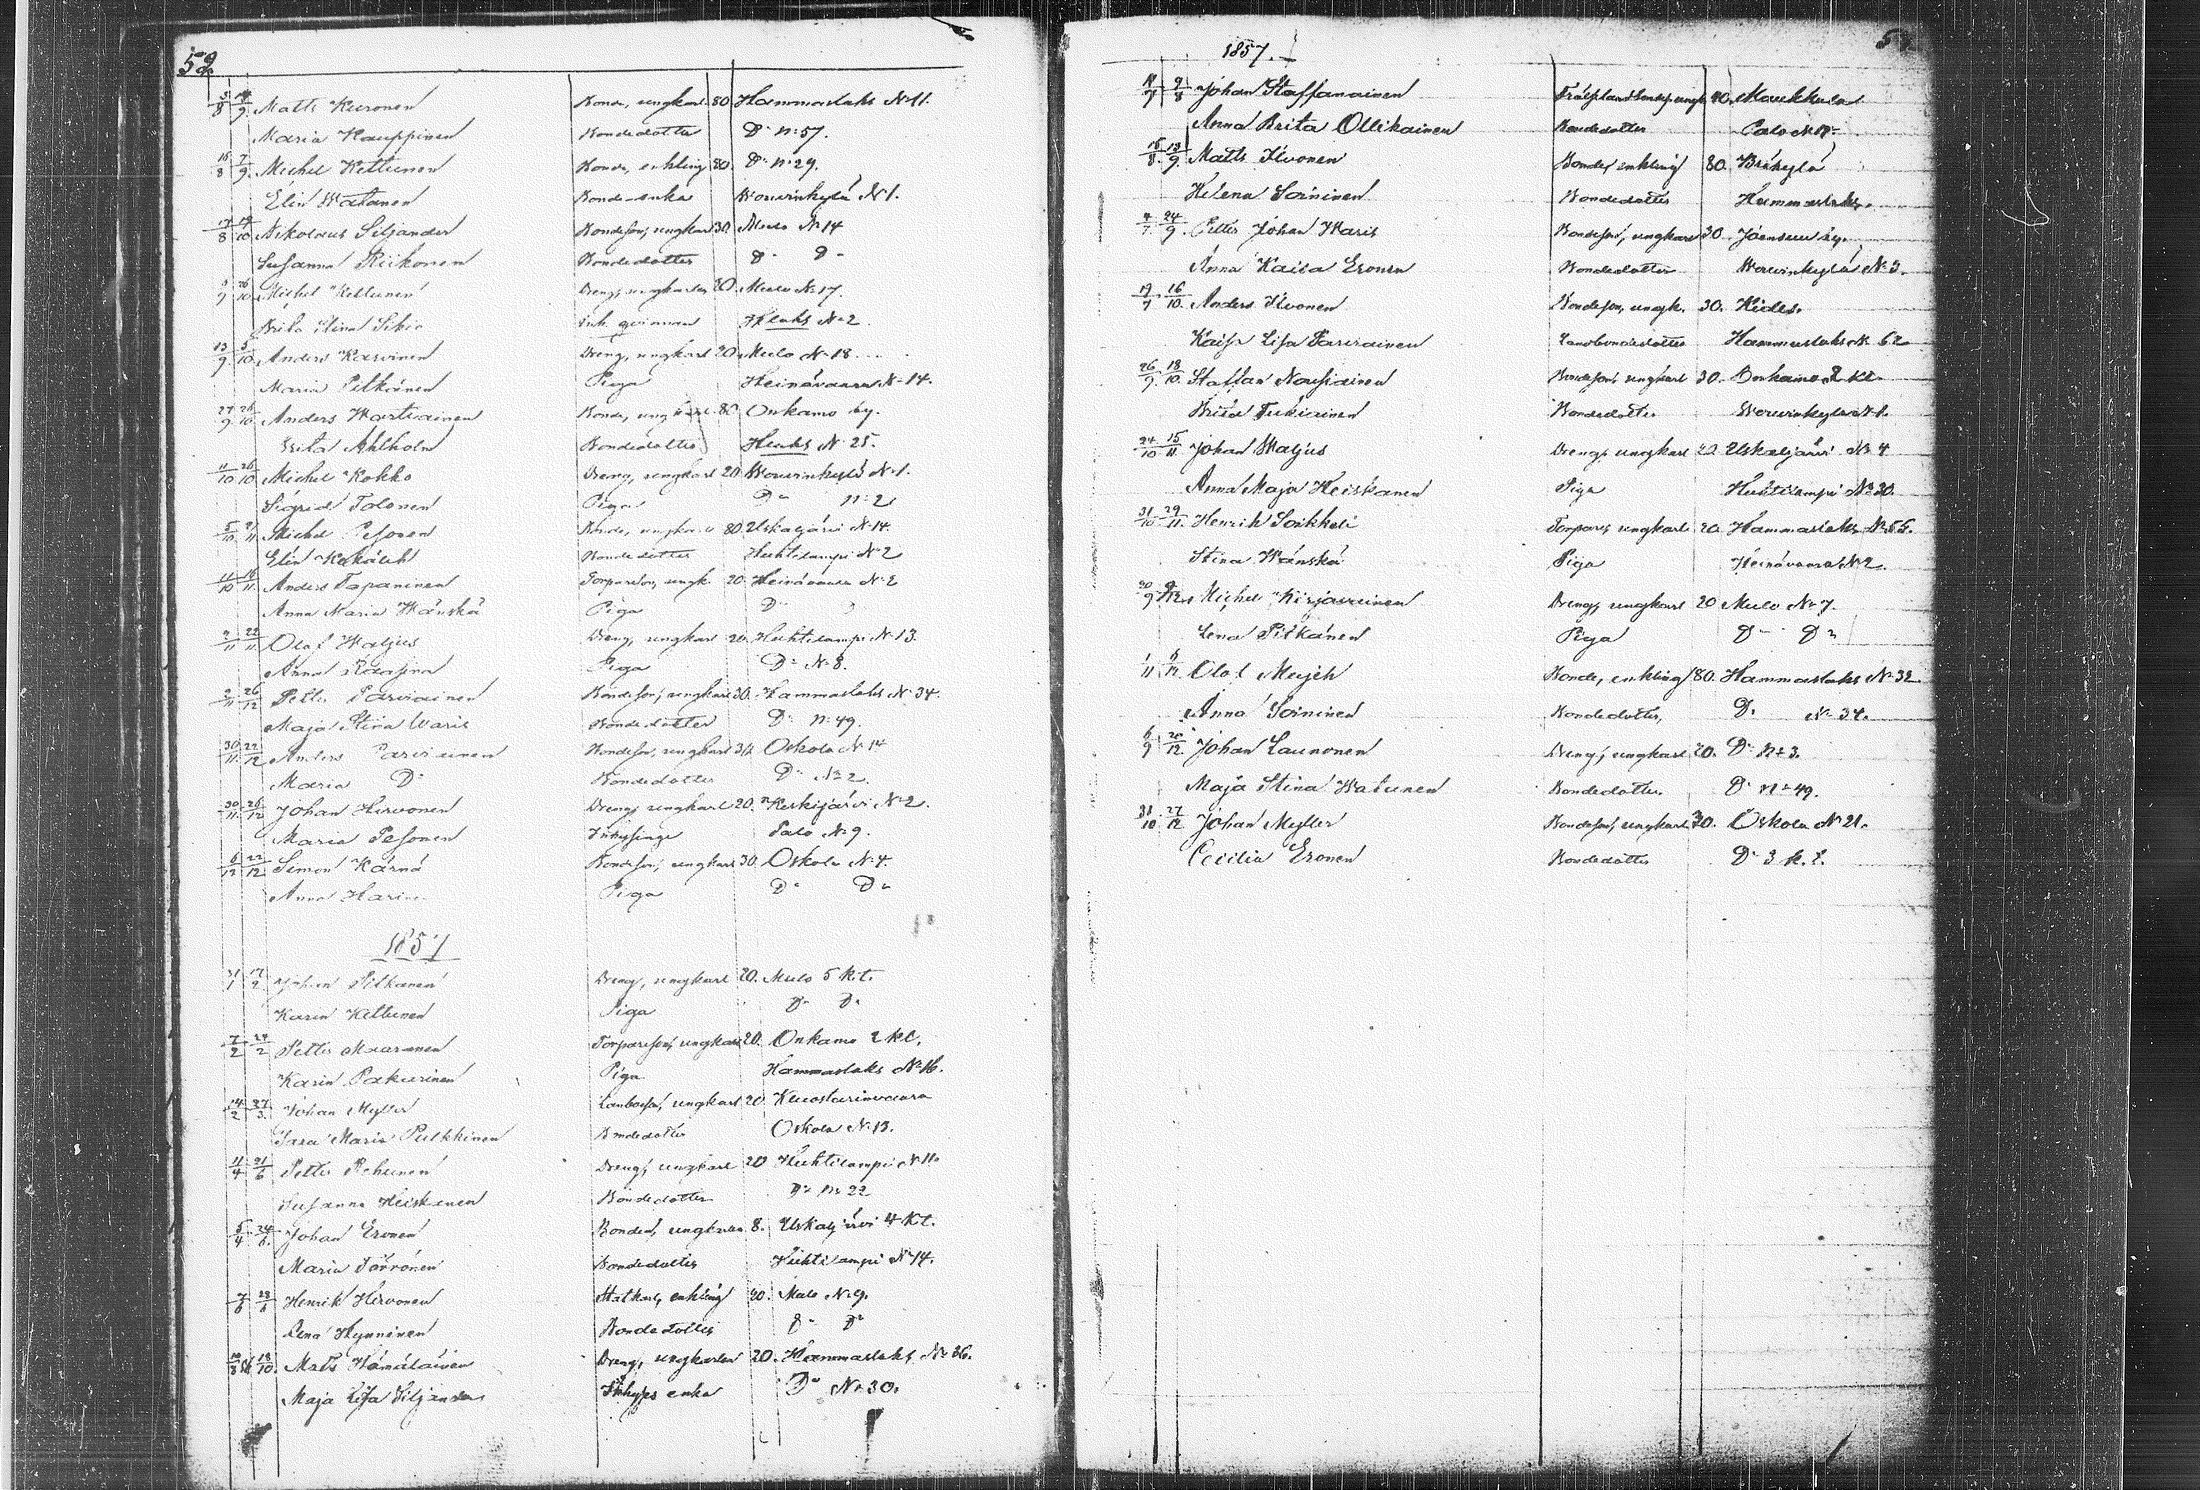 52
3/8 14/9 Matts Kuronen Bonde, ungkarl 80 Hammaslaks N:11.
Maria Kauppinen Bondedotter D:o n:57.
16/8 7/9 Michel Kettunen Bonde, enkling 80. D:o n:29.
Elin Watanen Bonde-enka Worvinkylä N:1.
17/8 19/10 Nikolaus Siljander Bondeson, ungkarl 30 Mulo N:14
Susanna Riikonen Bondedotter D:o D:o
9/9 26/10 Michel Kettunen Dreng, ungkarlen 20 Mulo N:17.
Brita Stina Inh. qvinnan N:2
13/9 5/10 Anders Karvinen Dreng, ungkarl 20 Mulo N:18
Maria Pitkänen Piga Heinävaara N:14.
27/9 26/10 Anders Wartiainen Bonde, ungkarl 80. Onkamo by.
Brita Ahlholm Bondedotter N:25.
11/10 26/10 Michel Kokko Dreng, ungkarl 20 Worvinkylä N:1.
Sigrid Tolonen Piga D:o n:2
5/10 21/11 Michel Pesonen Bonde, ungkarl 80 Uskaljärvi N:14.
Elin Bondedotter Huhtilampi N:2
11/10 16/11 Anders Tapaninen Torpareson, ungk. 20 Heinävaara N:2
Anna Maria Wänskä Piga D:o
2/11 22/11 Olof Waljus Dreng, ungkarl 20. Huhtilampi N:13.
Anna Piga D:o N:8.
2/11 26/12 Petter Parviainen Bondeson, ungkarl 30. Hammaslaks N:34.
Maja Stina Waris Bondedotter D:o n:49.
30/11 22/12 Anders Parviainen Bondeson, ungkarl 30. Oskola N:14
Maria D:o Bondedotter D:o N:2.
30/11 26/12 Johan Hirvonen Dreng, ungkarl 20. Keskijärvi N:2.
Maria Pesonen Inhysinge Palo N:9.
6/12 22/12 Simon Kärnä Bondeson, ungkarl 30. Oskola N:4.
Anna Piga D:o D:o
1857
31/1 17/2 Johan Pitkänen Dreng, ungkarl 20. Mulo 5 K.t.
Karin Kettunen Piga D:o D:o
7/2 24/2 Petter Muranen Torpareson, ungkarl 20. Onkamo 2 Kl.
Karin Pakurinen Piga Hammaslaks N:16.
14/2 27/3 Johan Myller ungkarl 20. Kuostarinvaara
Sara Maria Pulkkinen Bondedotter Oskola N:13.
11/4 21/6 Petter Rehunen Dreng, ungkarl 20 Huhtilampi N:11.
Susanna Heiskanen Bondedotter D:o n:22
5/4 24/6 Johan Eronen Bonden, ungkarlen 8. Uskaljärvi 4 Kt.
Maria Törrönen Bondedotter Huhtilampi N:14.
7/6 28/6 Henrik Hirvonen Statkarl, enkling 20. Mulo N:9.
Lena Hynninen Bondedotter D:o D:o
10/8 18/10 Mats Hämäläinen Dreng, ungkarlen 20. Hammaslaks N:36.
Maja Lisa Siljander Inhyses enka D:o N:30.
1857.
19/7 9/8 Johan Staffanainen 40. Maukkula
Anna Brita Ollikainen Bondedotter Palo N:17
16/8 13/9 Matts Ilvonen Bonde, enkling 80. Bräkylä
Helena Soininen Bondedotter Hammaslaks.
4/7 24/9 Petter Johan Waris Bondeson, ungkarl 30. Joensuu by.
Anna Kaisa Eronen Bondedotter Worvinkylä N:3.
19/7 16/10 Anders Ilvonen Bondeson, ungk. 30. Kides.
Kaisa Lisa Parviainen Landbondedotter Hammaslaks N:62
26/9 18/10 Staffan Nousiainen Bondeson, ungkarl 30. Onkamo 2 Kt
Brita Tukiainen Bondedotter Worvinkylä N:1.
24/10 15/11 Johan Waljus Dreng, ungkarl 20 Uskaljärvi N:4
Anna Maja Heiskanen Piga Huhtilampi N:20.
31/10 29/11 Henrik Soikkeli Torpare, ungkarl 20. Hammaslaks N:55.
Stina Wänskä Piga Heinävaara N:2.
20/9 Michel Kirjavainen Dreng, ungkarl 20 Mulo N:7.
Lena Pitkänen Piga D:o D:o
1/11 6/12 Olof Meijeh Bonde, enkling 80. Hammaslaks N:32
Anna Soininen Bondedotter, D:o N:34.
6/9 20/12 Johan Launonen Dreng, ungkarl 20. D:o n:3.
Maja Stina Watanen Bondedotter D:o n:49.
31/10 27/12 Johan Myller Bondeson, ungkarl 30. Oskola N:21.
Cecilia Eronen Bondedotter D:o 3 k.t.